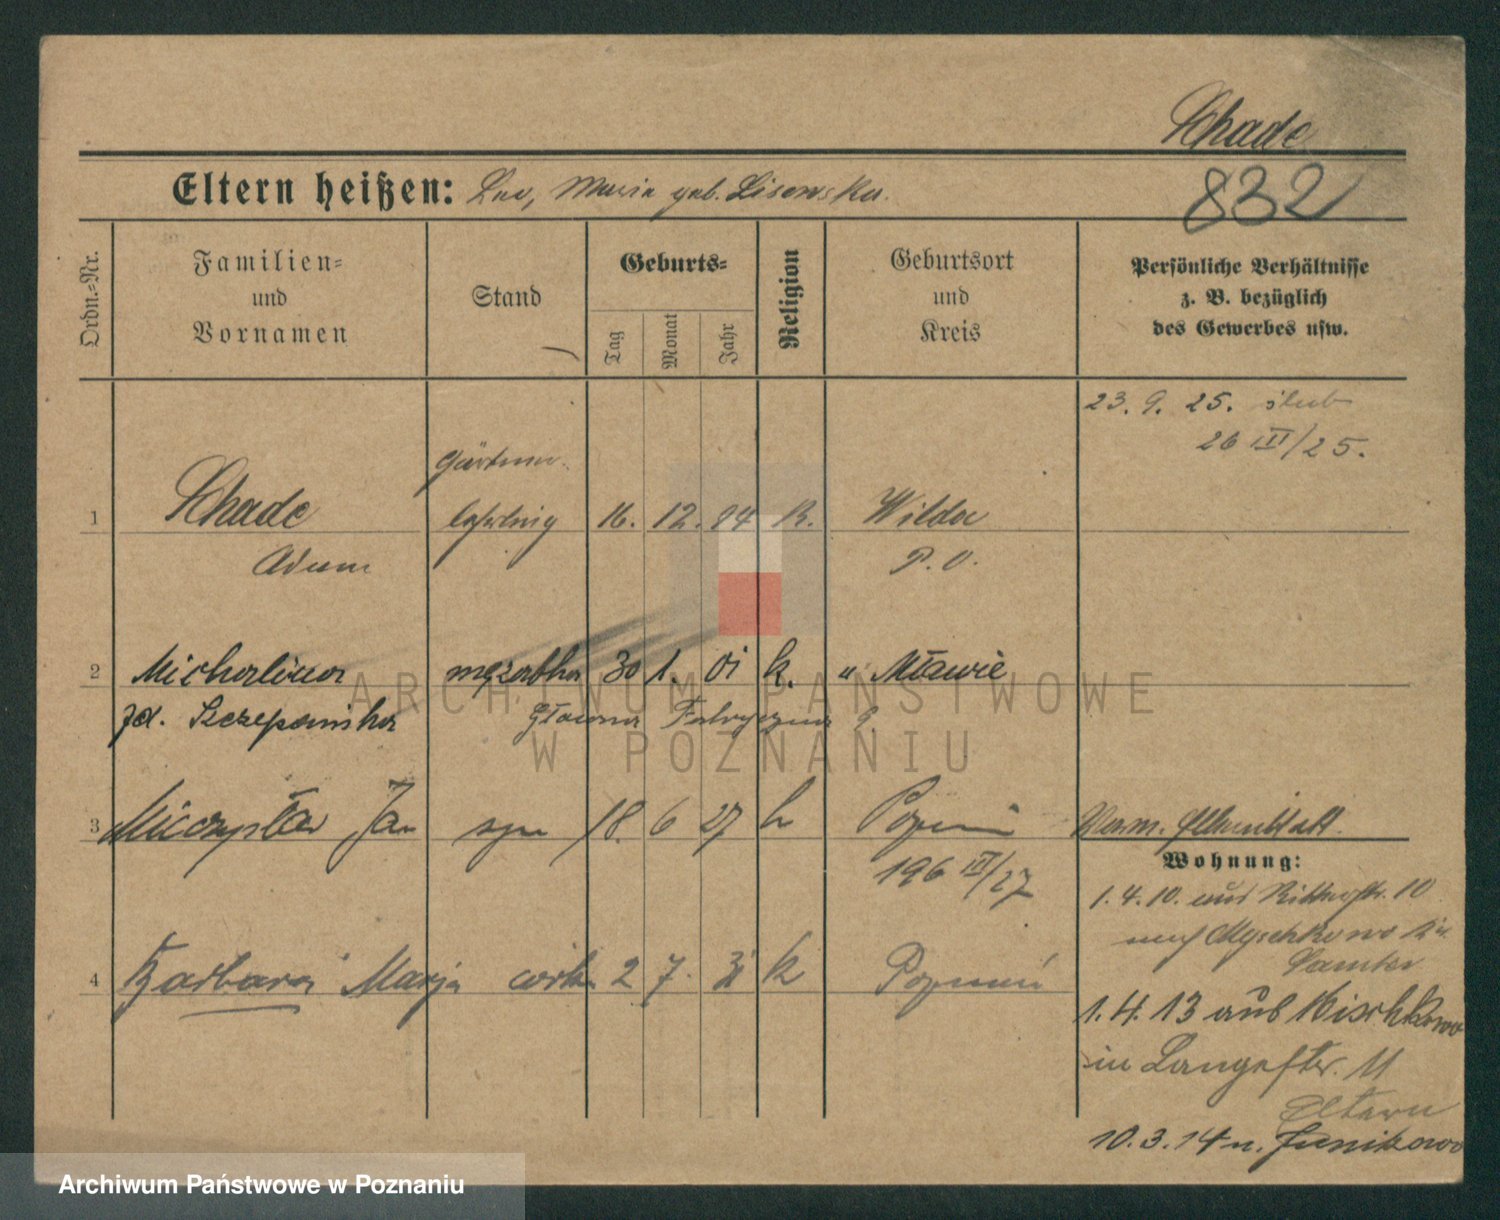 Schade
832
Eltern heißen: Leo, Maria geb. Lisewska.
Ordn.-Nr.
Familien-
und
Vornamen
Stand
Geburts-
Tag
Monat
Jahr
Religion
Geburtsort
und
Kreis
Persönliche Verhältnisse
z. B. bezüglich
des Gewerbes usw.
23. 9. 25. ślub
26 III/25.
Gärtner-
1 Schade lehrling 16. 12. 94 K. Wilda
Adam P. O.
2 Michalina mężatka 30 1. 01 k. u Mławie
zd. Szczepańska Główna Fabryczna 9
3 Mieczysław Jan syn 18. 6 27 k Poznań
196 III/27
Wohnung:
1. 4. 10. aus Ritterstr. 10
nach
4 Barbara Marja córka 2 7. 31 k Poznań
1. 4. 13 aus Mischkowo
in Langestr. 11
Eltern
10. 3. 14 n. Junikowo
ARCHIWUM PAŃSTWOWE
W POZNANIU
Archiwum Państwowe w Poznaniu